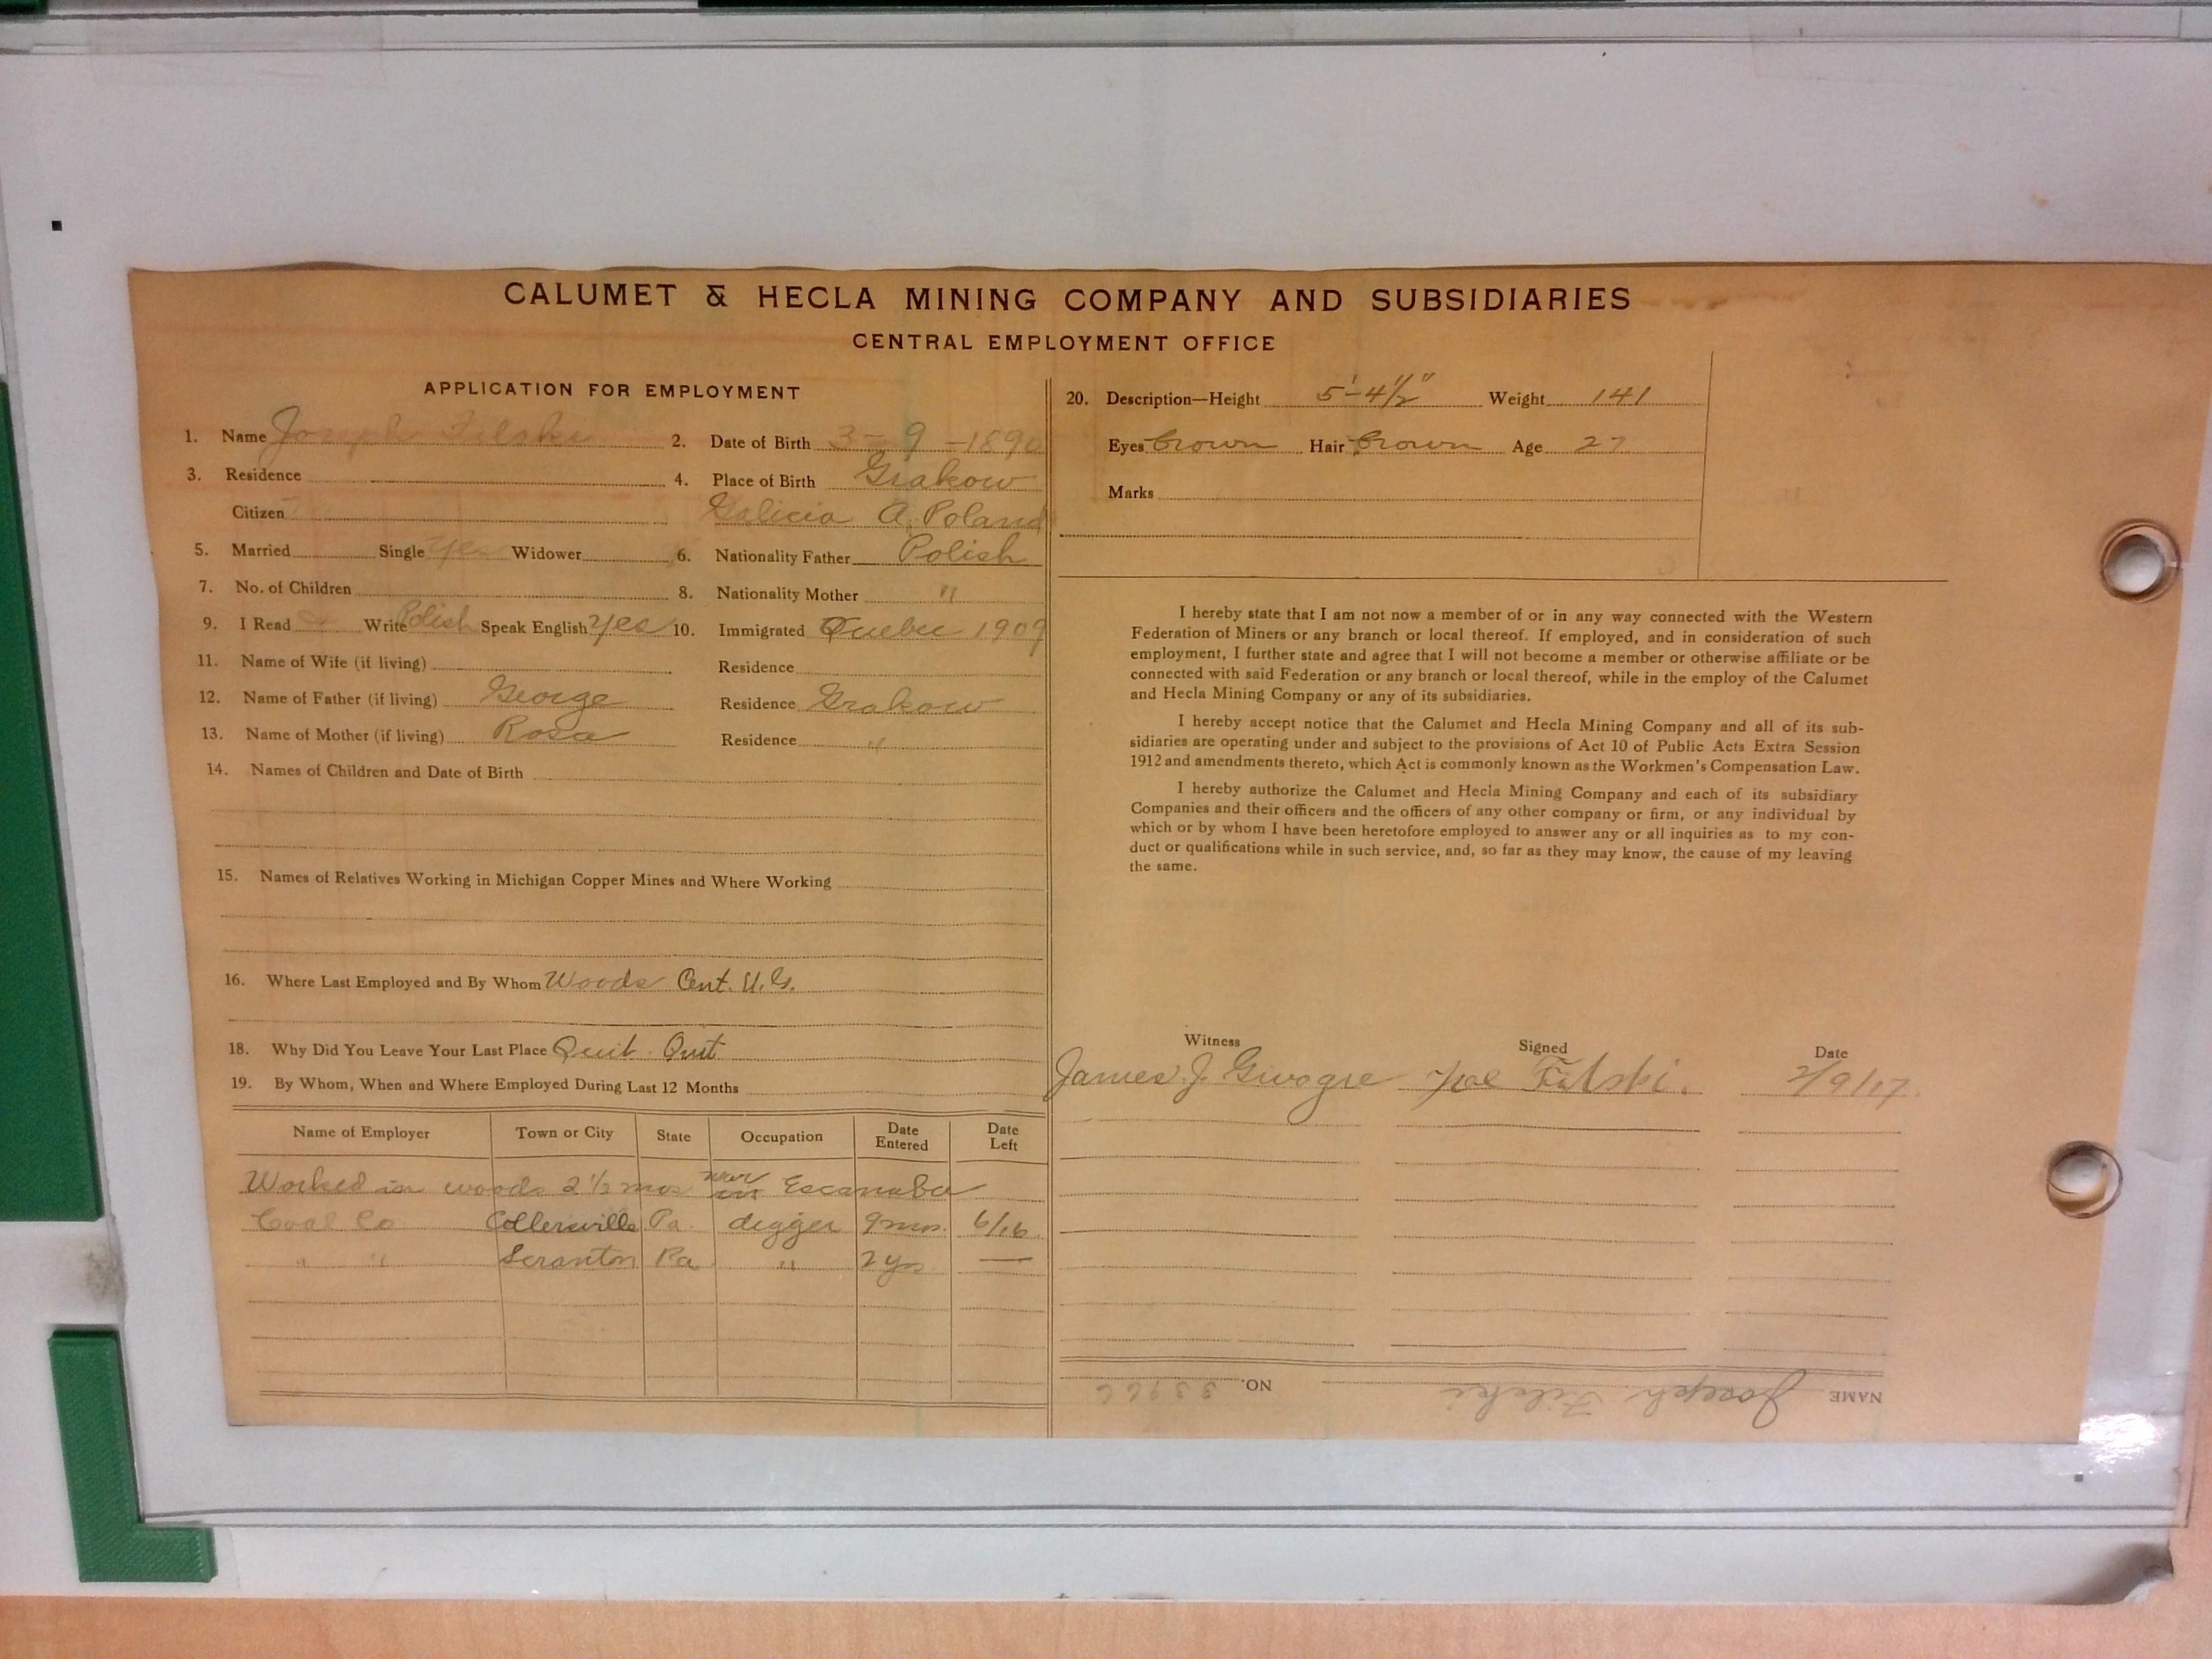 CALUMET & HECLA MINING COMPANY AND SUBSIDIARIES
CENTRAL EMPLOYMENT OFFICE
APPLICATION FOR EMPLOYMENT
1. Name Joseph Filski 2. Date of Birth 3-9-1890
3. Residence 4. Place of Birth Grakow
Citizen Galicia A. Poland
5. Married Single Yes Widower 6. Nationality Father Polish
7. No. of Children 8. Nationality Mother "
9. I Read & Write Polish Speak English Yes 10. Immigrated Quebec 1909
11. Name of Wife (if living) Residence
12. Name of Father (if living) George Residence Grakow
13. Name of Mother (if living) Rosa Residence "
14. Names of Children and Date of Birth
15. Names of Relatives Working in Michigan Copper Mines and Where Working
16. Where Last Employed and By Whom Woods Cent. U.G.
18. Why Did You Leave Your Last Place Quit Quit
19. By Whom, When and Where Employed During Last 12 Months
Name of Employer Town or City State Occupation Date Entered Date Left
Worked in woods 2 1/2 mos near Escanaba
Coal Co Collersville Pa. digger 9 mos. 6/16
" " Scranton Pa. " 2 yrs —
20. Description—Height 5'-4 1/2" Weight 141
Eyes brown Hair brown Age 27
Marks
I hereby state that I am not now a member of or in any way connected with the Western
Federation of Miners or any branch or local thereof. If employed, and in consideration of such
employment, I further state and agree that I will not become a member or otherwise affiliate or be
connected with said Federation or any branch or local thereof, while in the employ of the Calumet
and Hecla Mining Company or any of its subsidiaries.
I hereby accept notice that the Calumet and Hecla Mining Company and all of its sub-
sidiaries are operating under and subject to the provisions of Act 10 of Public Acts Extra Session
1912 and amendments thereto, which Act is commonly known as the Workmen's Compensation Law.
I hereby authorize the Calumet and Hecla Mining Company and each of its subsidiary
Companies and their officers and the officers of any other company or firm, or any individual by
which or by whom I have been heretofore employed to answer any or all inquiries as to my con-
duct or qualifications while in such service, and, so far as they may know, the cause of my leaving
the same.
Witness Signed Date
James J. Joe Filski. 2/9/17.
NAME Joseph Filski NO. 33966